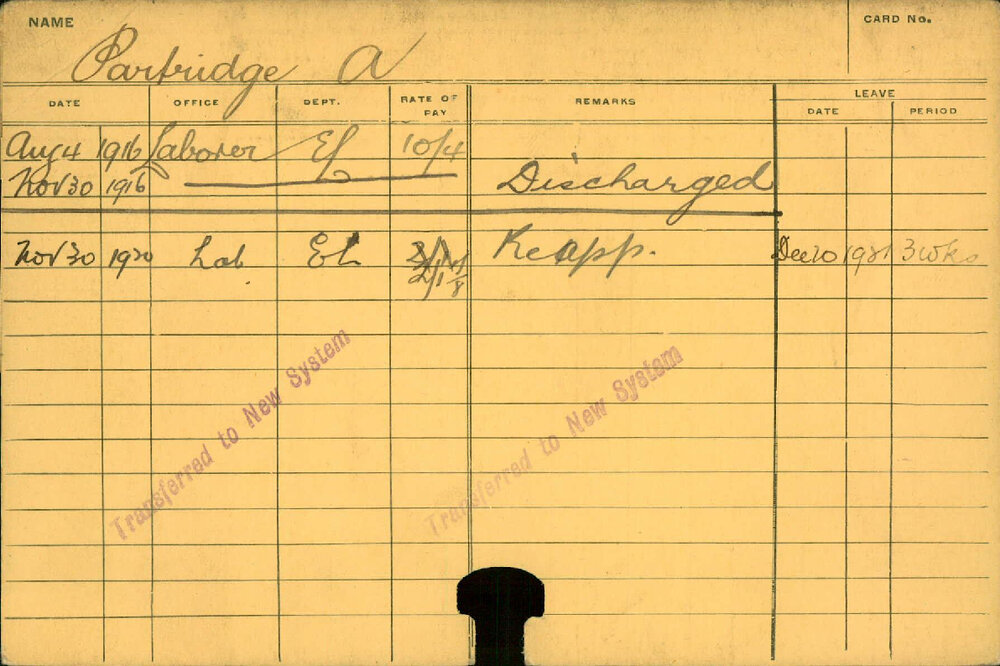 NAME
CARD No.
Partridge A
DATE OFFICE DEPT. RATE OF PAY REMARKS LEAVE
DATE PERIOD
Aug 4 1916 Laborer El 10/4
Nov 30 1916 Discharged
Nov 30 1920 Lab EL Reapp. Dec 20 1921 3 wks
Transferred to New System
Transferred to New System